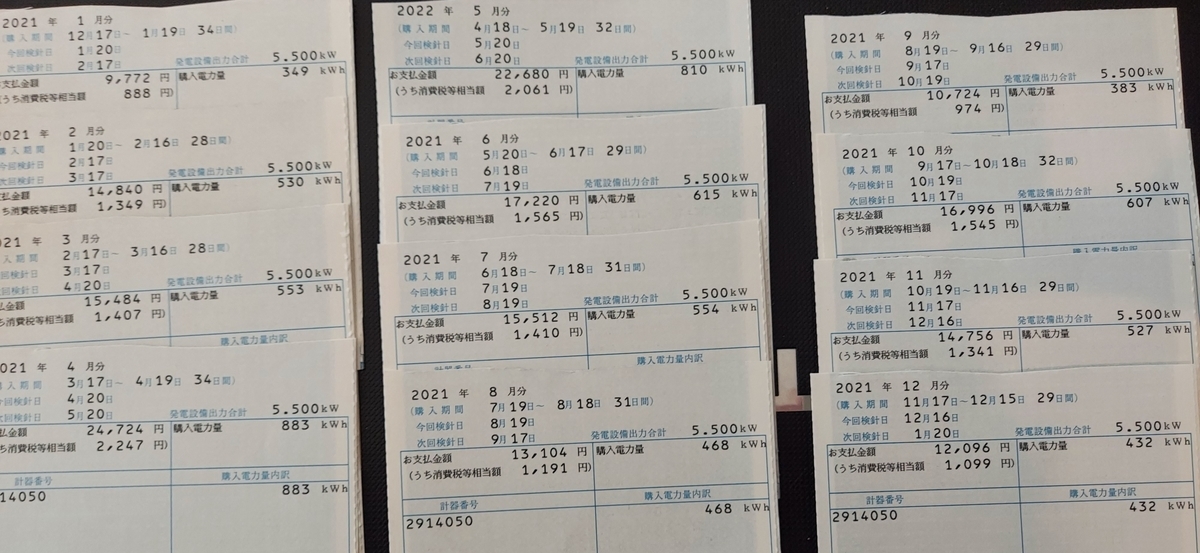 2021 年 1 月分
(購入期間 12月17日~ 1月19日 34日間)
今回検針日 1月20日
次回検針日 2月17日 発電設備出力合計 5.500kW
お支払金額 9,772 円 購入電力量 349 kWh
(うち消費税等相当額 888 円)
2021 年 2 月分
購入期間 1月20日~ 2月16日 28日間)
今回検針日 2月17日
次回検針日 3月17日 発電設備出力合計 5.500kW
支払金額 14,840 円 購入電力量 530 kWh
うち消費税等相当額 1,349 円)
021 年 3 月分
購入期間 2月17日~ 3月16日 28日間)
今回検針日 3月17日
次回検針日 4月20日 発電設備出力合計 5.500kW
払金額 15,484 円 購入電力量 553 kWh
ち消費税等相当額 1,407 円)
購入電力量内訳
021 年 4 月分
購入期間 3月17日~ 4月19日 34日間)
今回検針日 4月20日
次回検針日 5月20日 発電設備出力合計 5.500kW
払金額 24,724 円 購入電力量 883 kWh
ち消費税等相当額 2,247 円)
計器番号 購入電力量内訳
14050 883 kWh
2022 年 5 月分
(購入期間 4月18日~ 5月19日 32日間)
今回検針日 5月20日
次回検針日 6月20日 発電設備出力合計 5.500kW
お支払金額 22,680 円 購入電力量 810 kWh
(うち消費税等相当額 2,061 円)
2021 年 6 月分
(購入期間 5月20日~ 6月17日 29日間)
今回検針日 6月18日
次回検針日 7月19日 発電設備出力合計 5.500kW
お支払金額 17,220 円 購入電力量 615 kWh
(うち消費税等相当額 1,565 円)
2021 年 7 月分
(購入期間 6月18日~ 7月18日 31日間)
今回検針日 7月19日
次回検針日 8月19日 発電設備出力合計 5.500kW
お支払金額 15,512 円 購入電力量 554 kWh
(うち消費税等相当額 1,410 円)
購入電力量内訳
2021 年 8 月分
(購入期間 7月19日~ 8月18日 31日間)
今回検針日 8月19日
次回検針日 9月17日 発電設備出力合計 5.500kW
お支払金額 13,104 円 購入電力量 468 kWh
(うち消費税等相当額 1,191 円)
計器番号 購入電力量内訳
2914050 468 kWh
2021 年 9 月分
(購入期間 8月19日~ 9月16日 29日間)
今回検針日 9月17日
次回検針日 10月19日 発電設備出力合計 5.500kW
お支払金額 10,724 円 購入電力量 383 kWh
(うち消費税等相当額 974 円)
2021 年 10 月分
(購入期間 9月17日~10月18日 32日間)
今回検針日 10月19日
次回検針日 11月17日 発電設備出力合計 5.500kW
お支払金額 16,996 円 購入電力量 607 kWh
(うち消費税等相当額 1,545 円)
購入電力量内訳
2021 年 11 月分
(購入期間 10月19日~11月16日 29日間)
今回検針日 11月17日
次回検針日 12月16日 発電設備出力合計 5.500kW
お支払金額 14,756 円 購入電力量 527 kWh
(うち消費税等相当額 1,341 円)
2021 年 12 月分
(購入期間 11月17日~12月15日 29日間)
今回検針日 12月16日
次回検針日 1月20日 発電設備出力合計 5.500kW
お支払金額 12,096 円 購入電力量 432 kWh
(うち消費税等相当額 1,099 円)
計器番号 購入電力量内訳
2914050 432 kWh